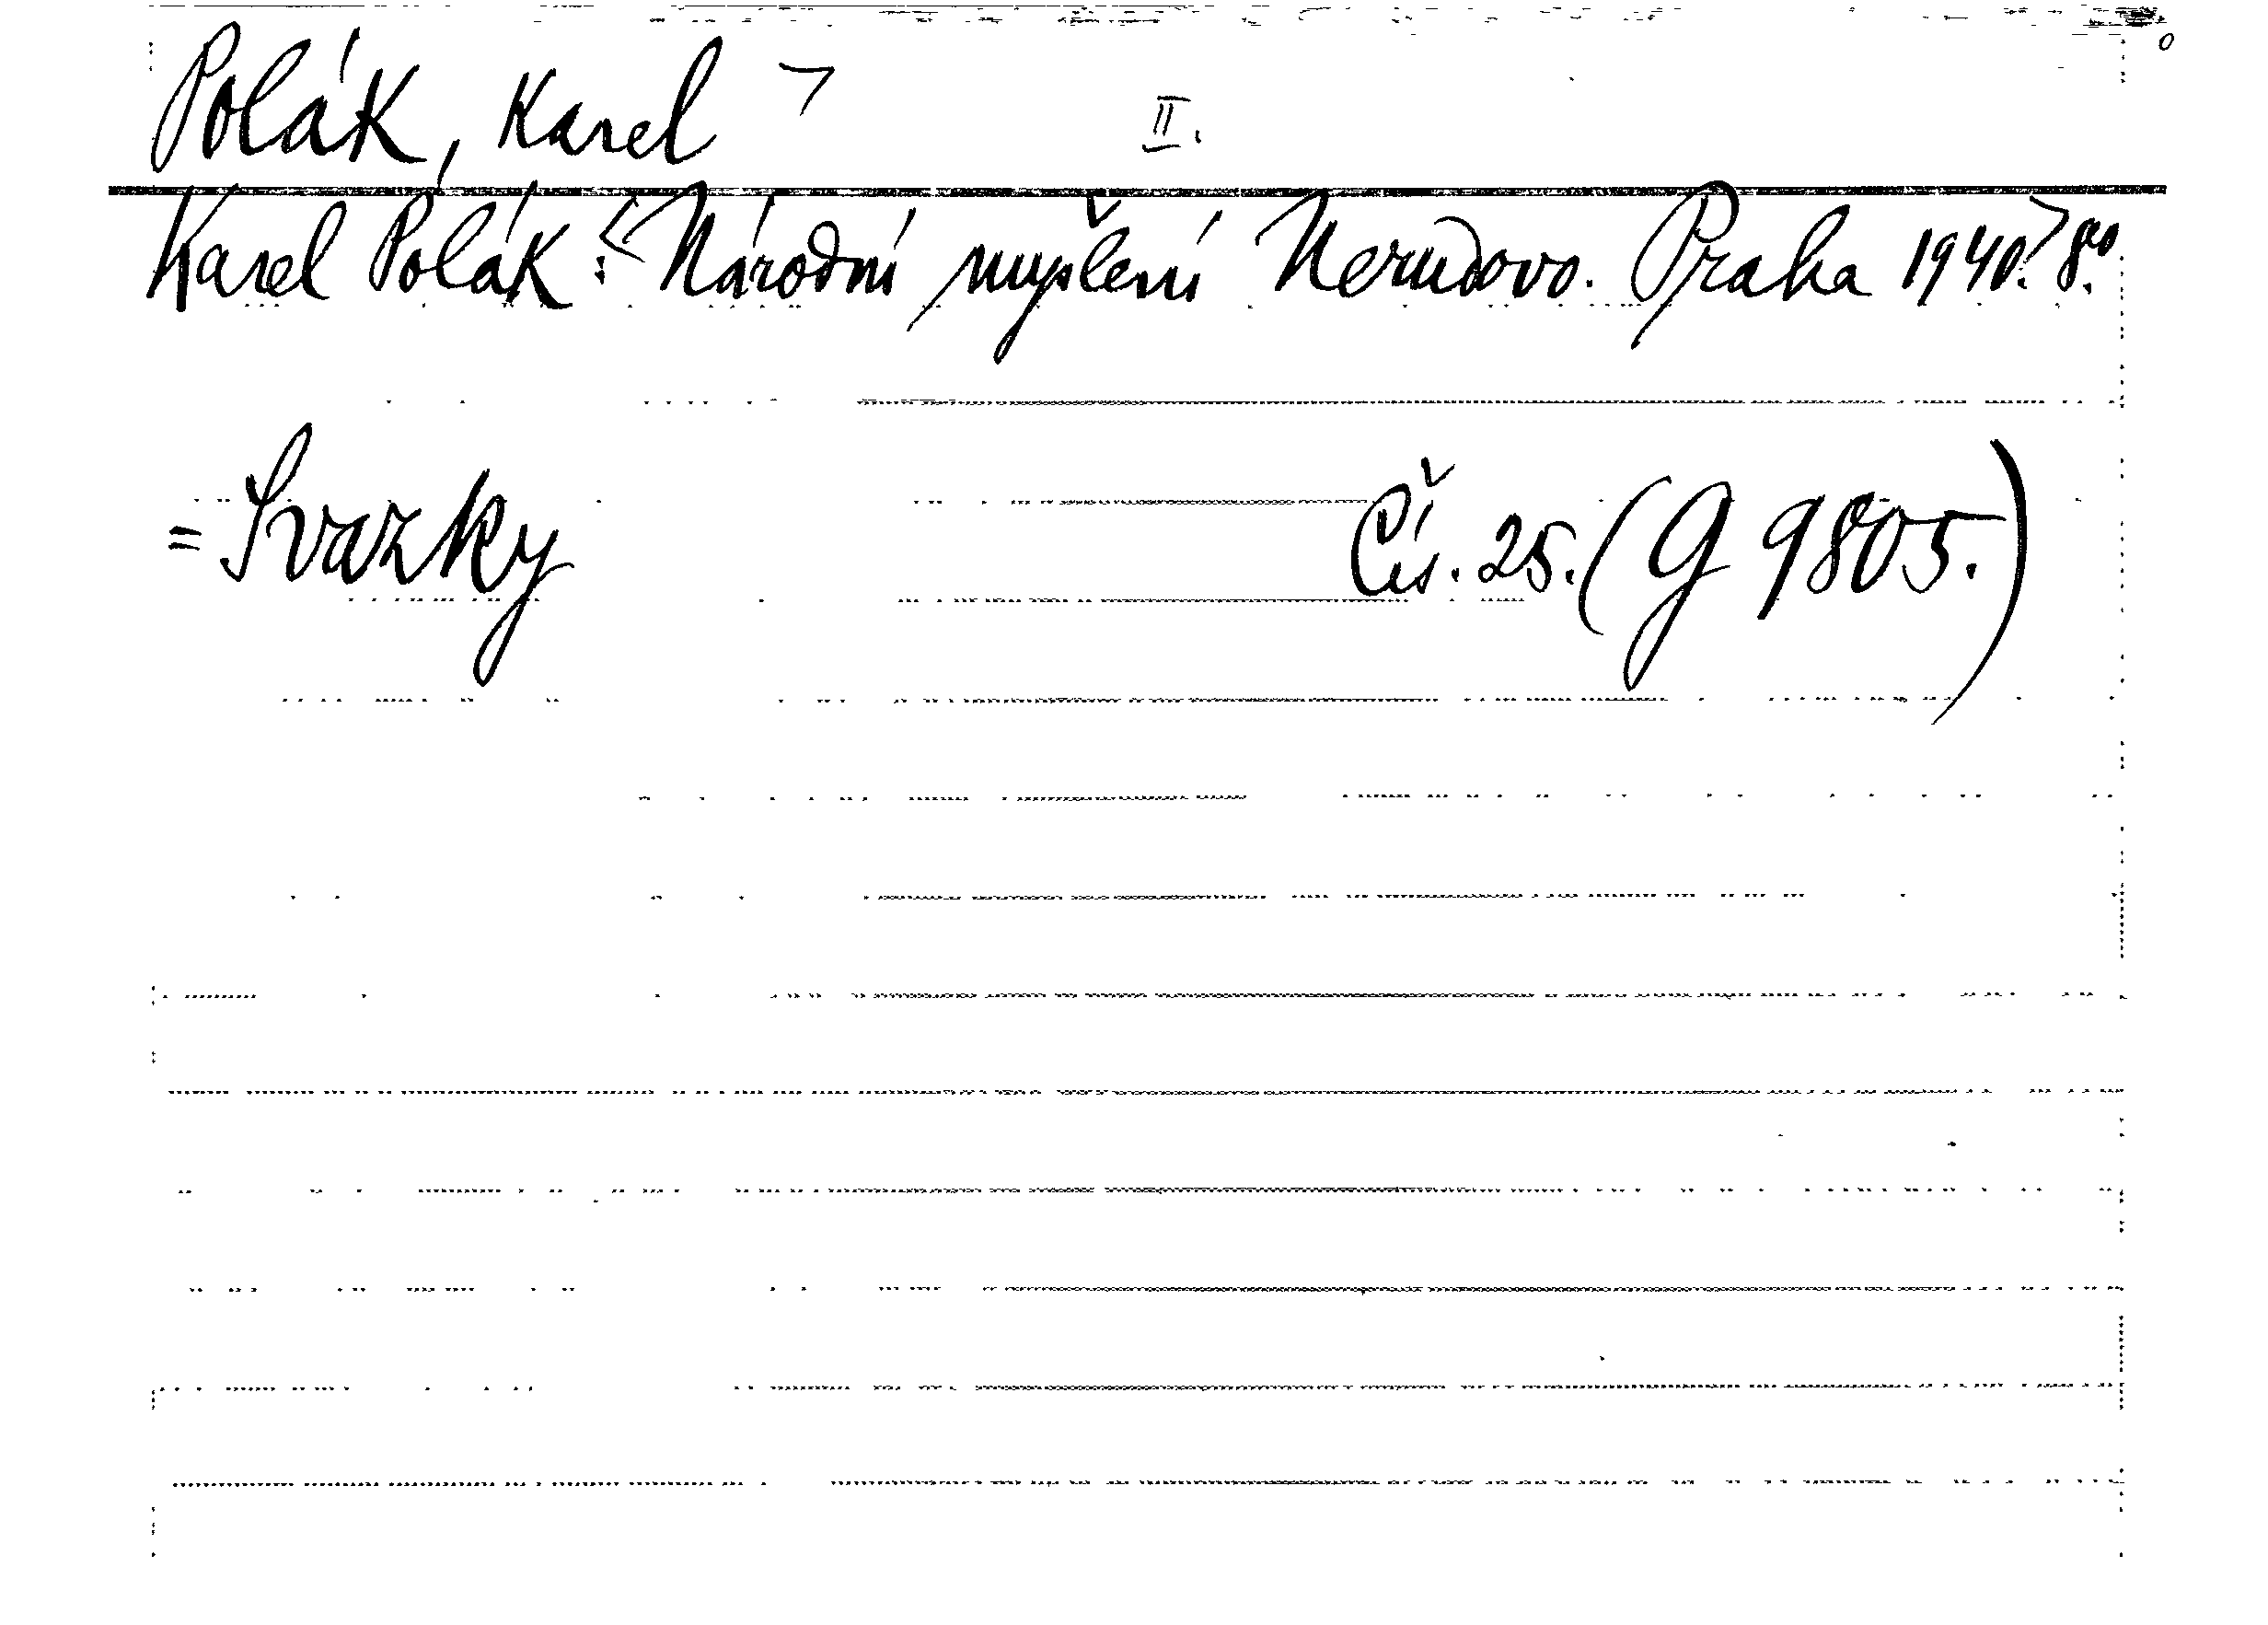 Polák, Karel ⁊ II.
Karel Polák: Národní myšlení Nerudovo. Praha 1940. 8º.
= Svazky Čís. 25. (G 9805.)